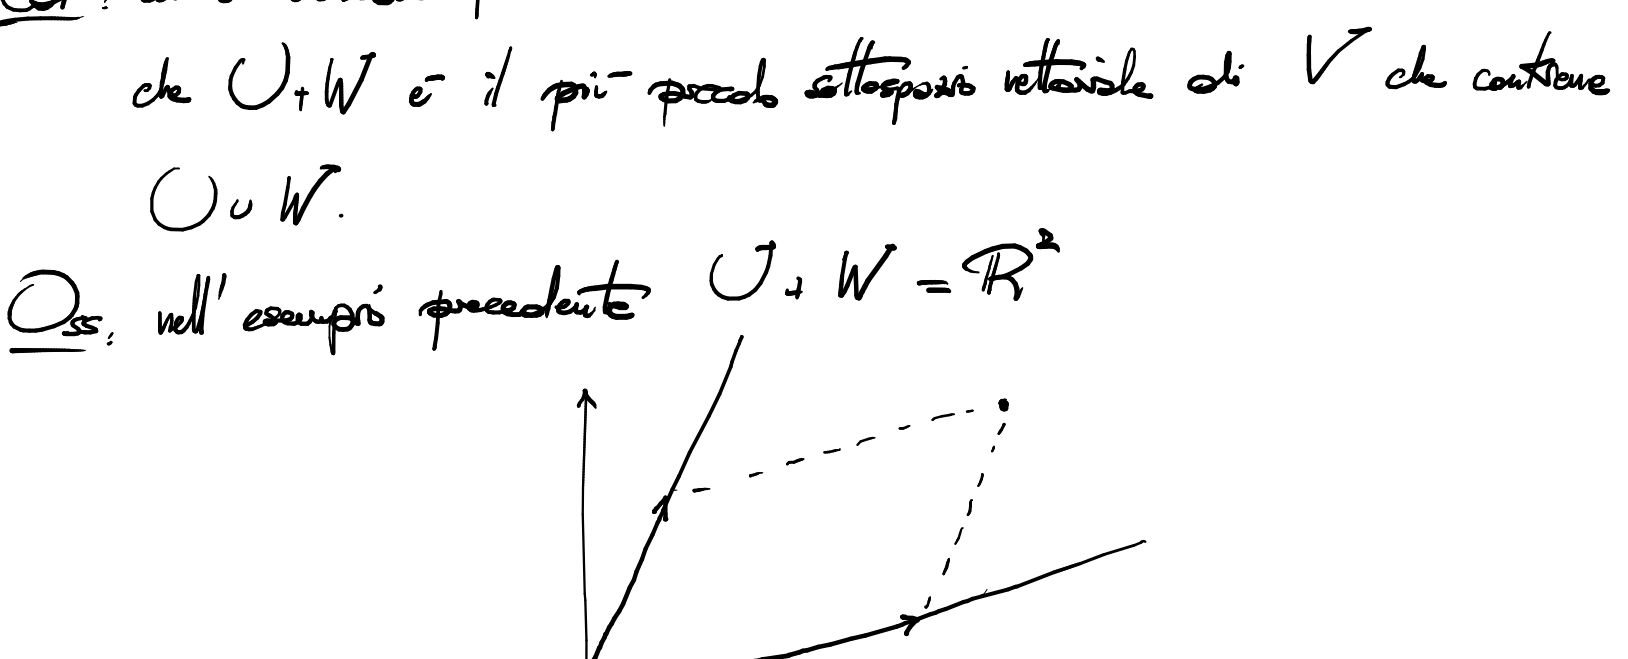 che U+W è il più piccolo sottospazio vettoriale di V che contiene
U∪W.
Oss: nell'esempio precedente U+W = ℝ²